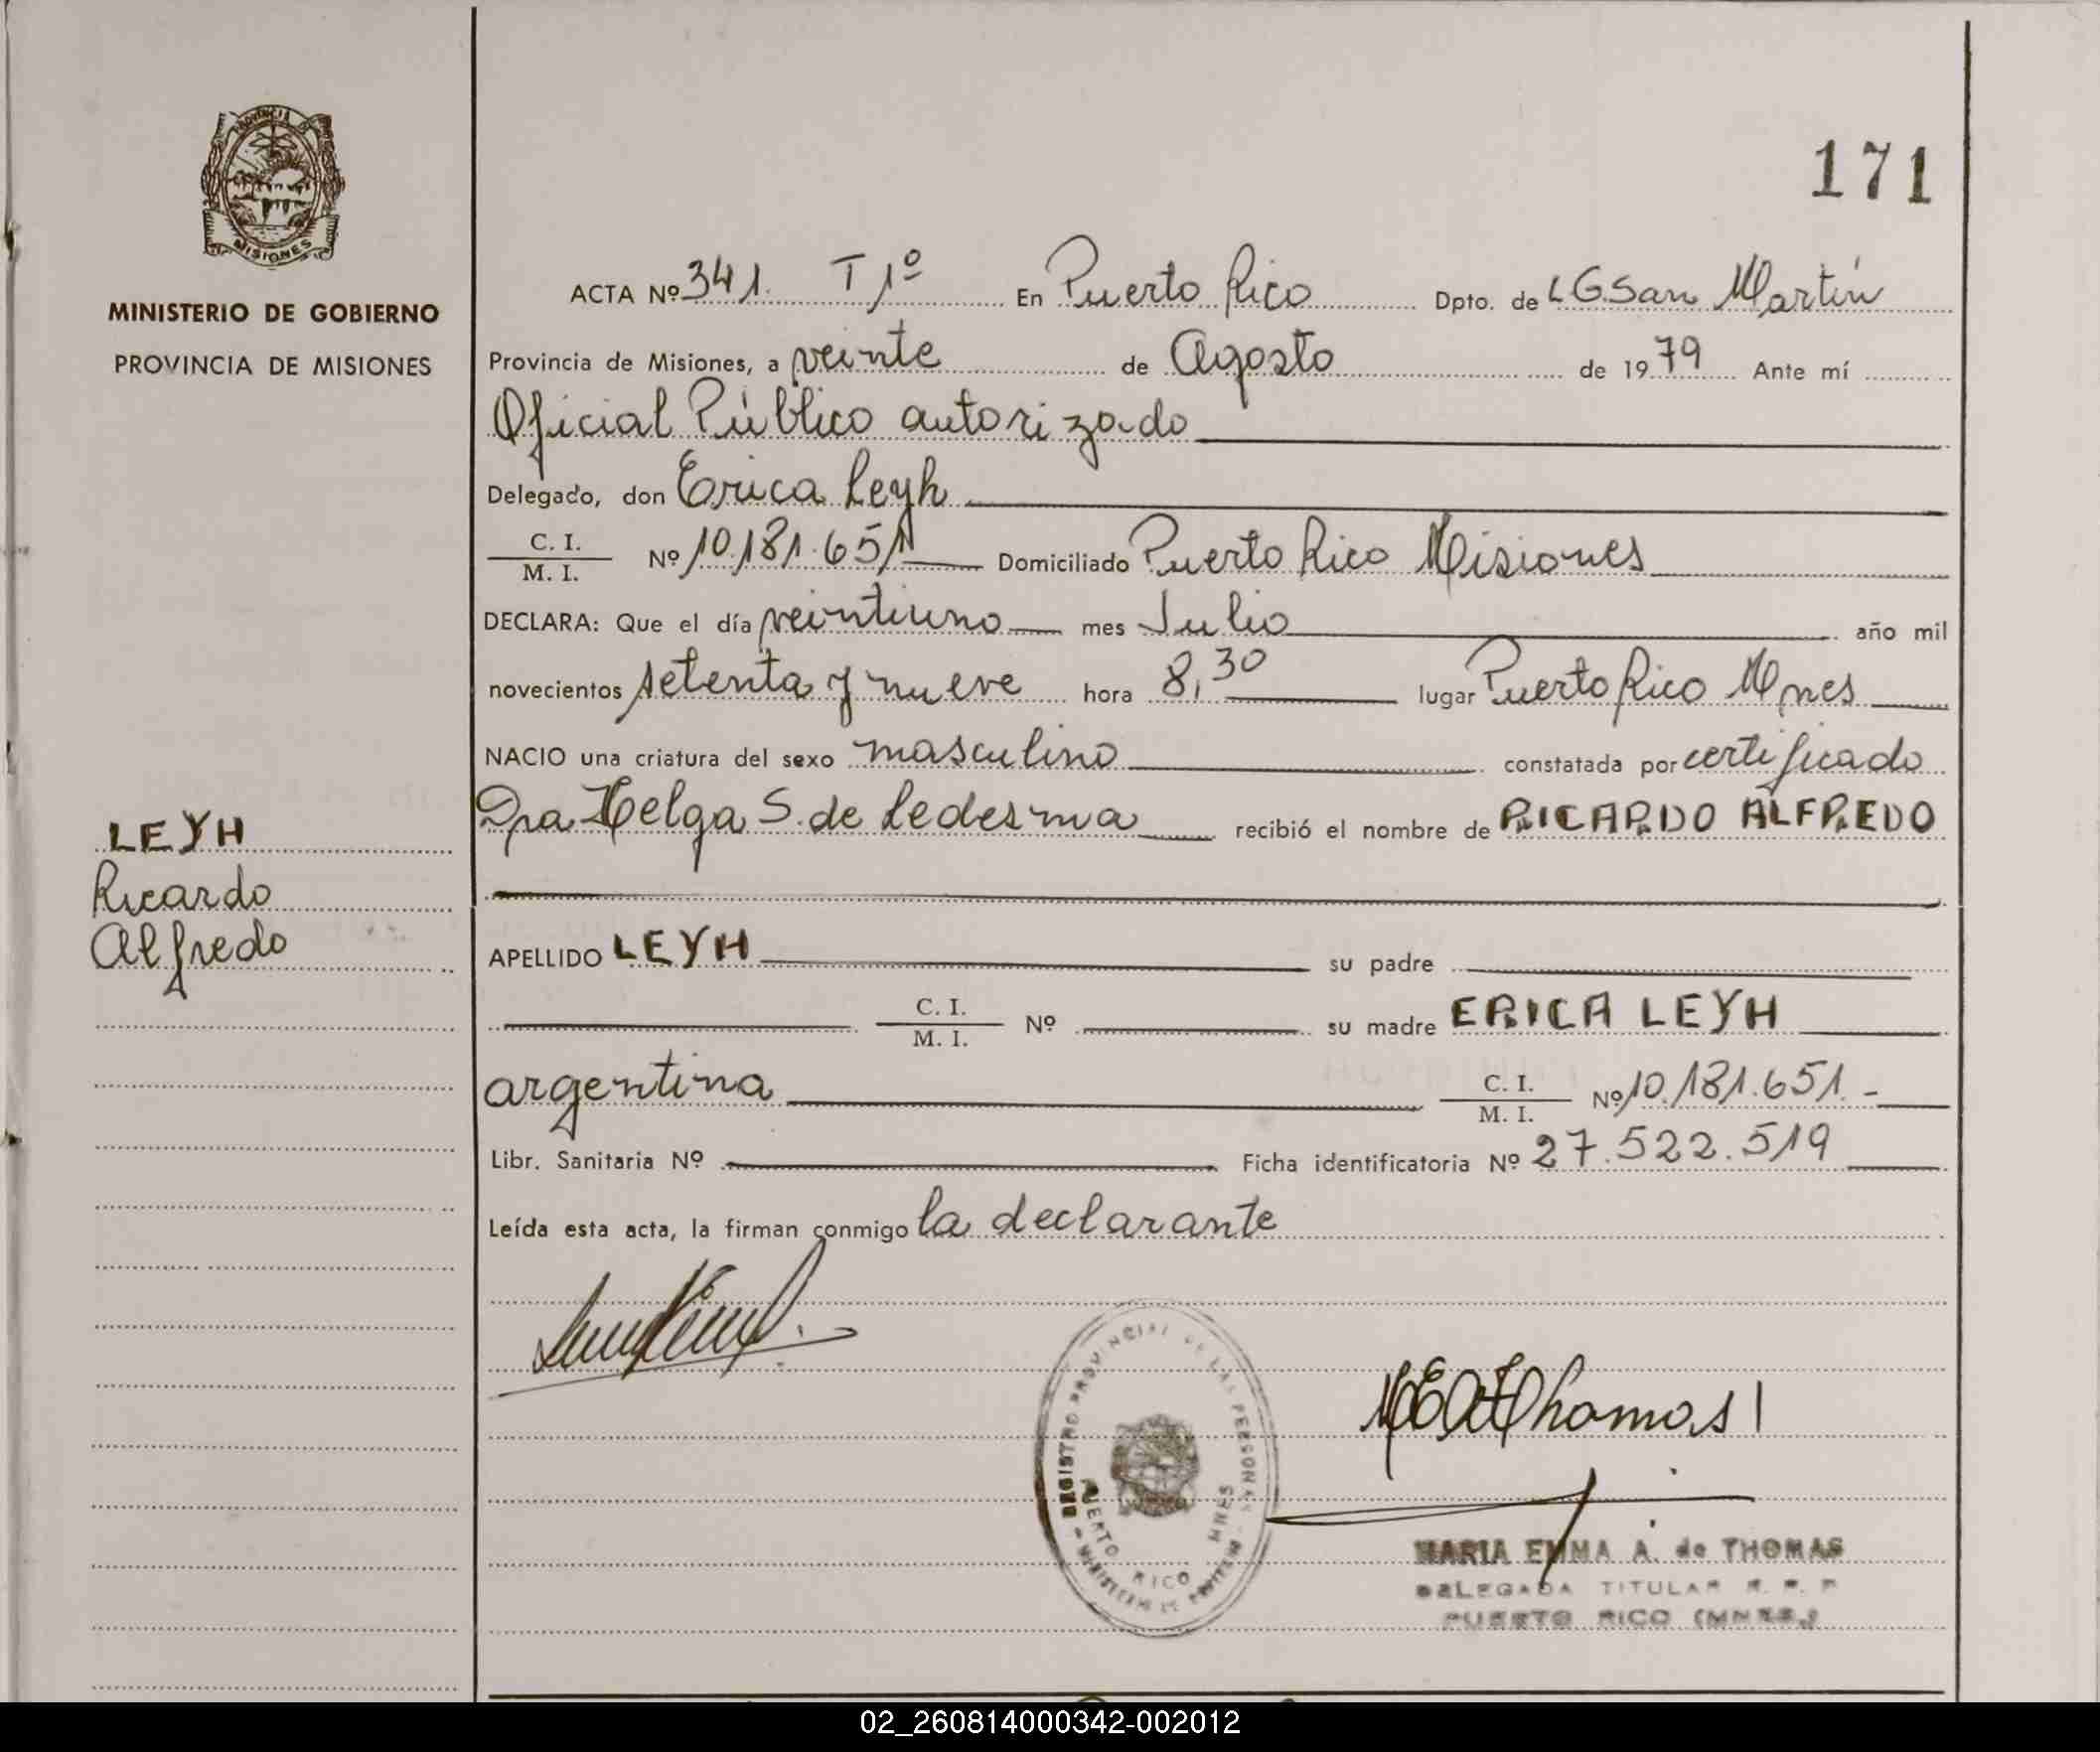 171
PROVINCIA
MISIONES
MINISTERIO DE GOBIERNO
PROVINCIA DE MISIONES
ACTA Nº 341. T 1º En Puerto Rico Dpto. de L G.San Martín
Provincia de Misiones, a veinte de Agosto de 1979 Ante mí
Oficial Público autorizado
Delegado, don Erica Leyh
C. I.
M. I.
Nº 10.181.651 Domiciliado Puerto Rico Misiones
DECLARA: Que el día veintiuno mes Julio año mil
novecientos setenta y nueve hora 8,30 lugar Puerto Rico Mnes
NACIO una criatura del sexo masculino constatada por certificado
Dra Helga S. de Ledesma recibió el nombre de RICARDO ALFREDO
LEYH
Ricardo
Alfredo
APELLIDO LEYH su padre
C. I.
M. I.
Nº su madre ERICA LEYH
argentina C. I.
M. I.
Nº 10.181.651.-
Libr. Sanitaria Nº Ficha identificatoria Nº 27.522.519
Leída esta acta, la firman conmigo la declarante
REGISTRO PROVINCIAL DE LAS PERSONAS
PUERTO RICO MNES
MEAdThomas
MARIA EMMA A. de THOMAS
DELEGADA TITULAR R. P. P
PUERTO RICO (MNES.)
02_260814000342-002012